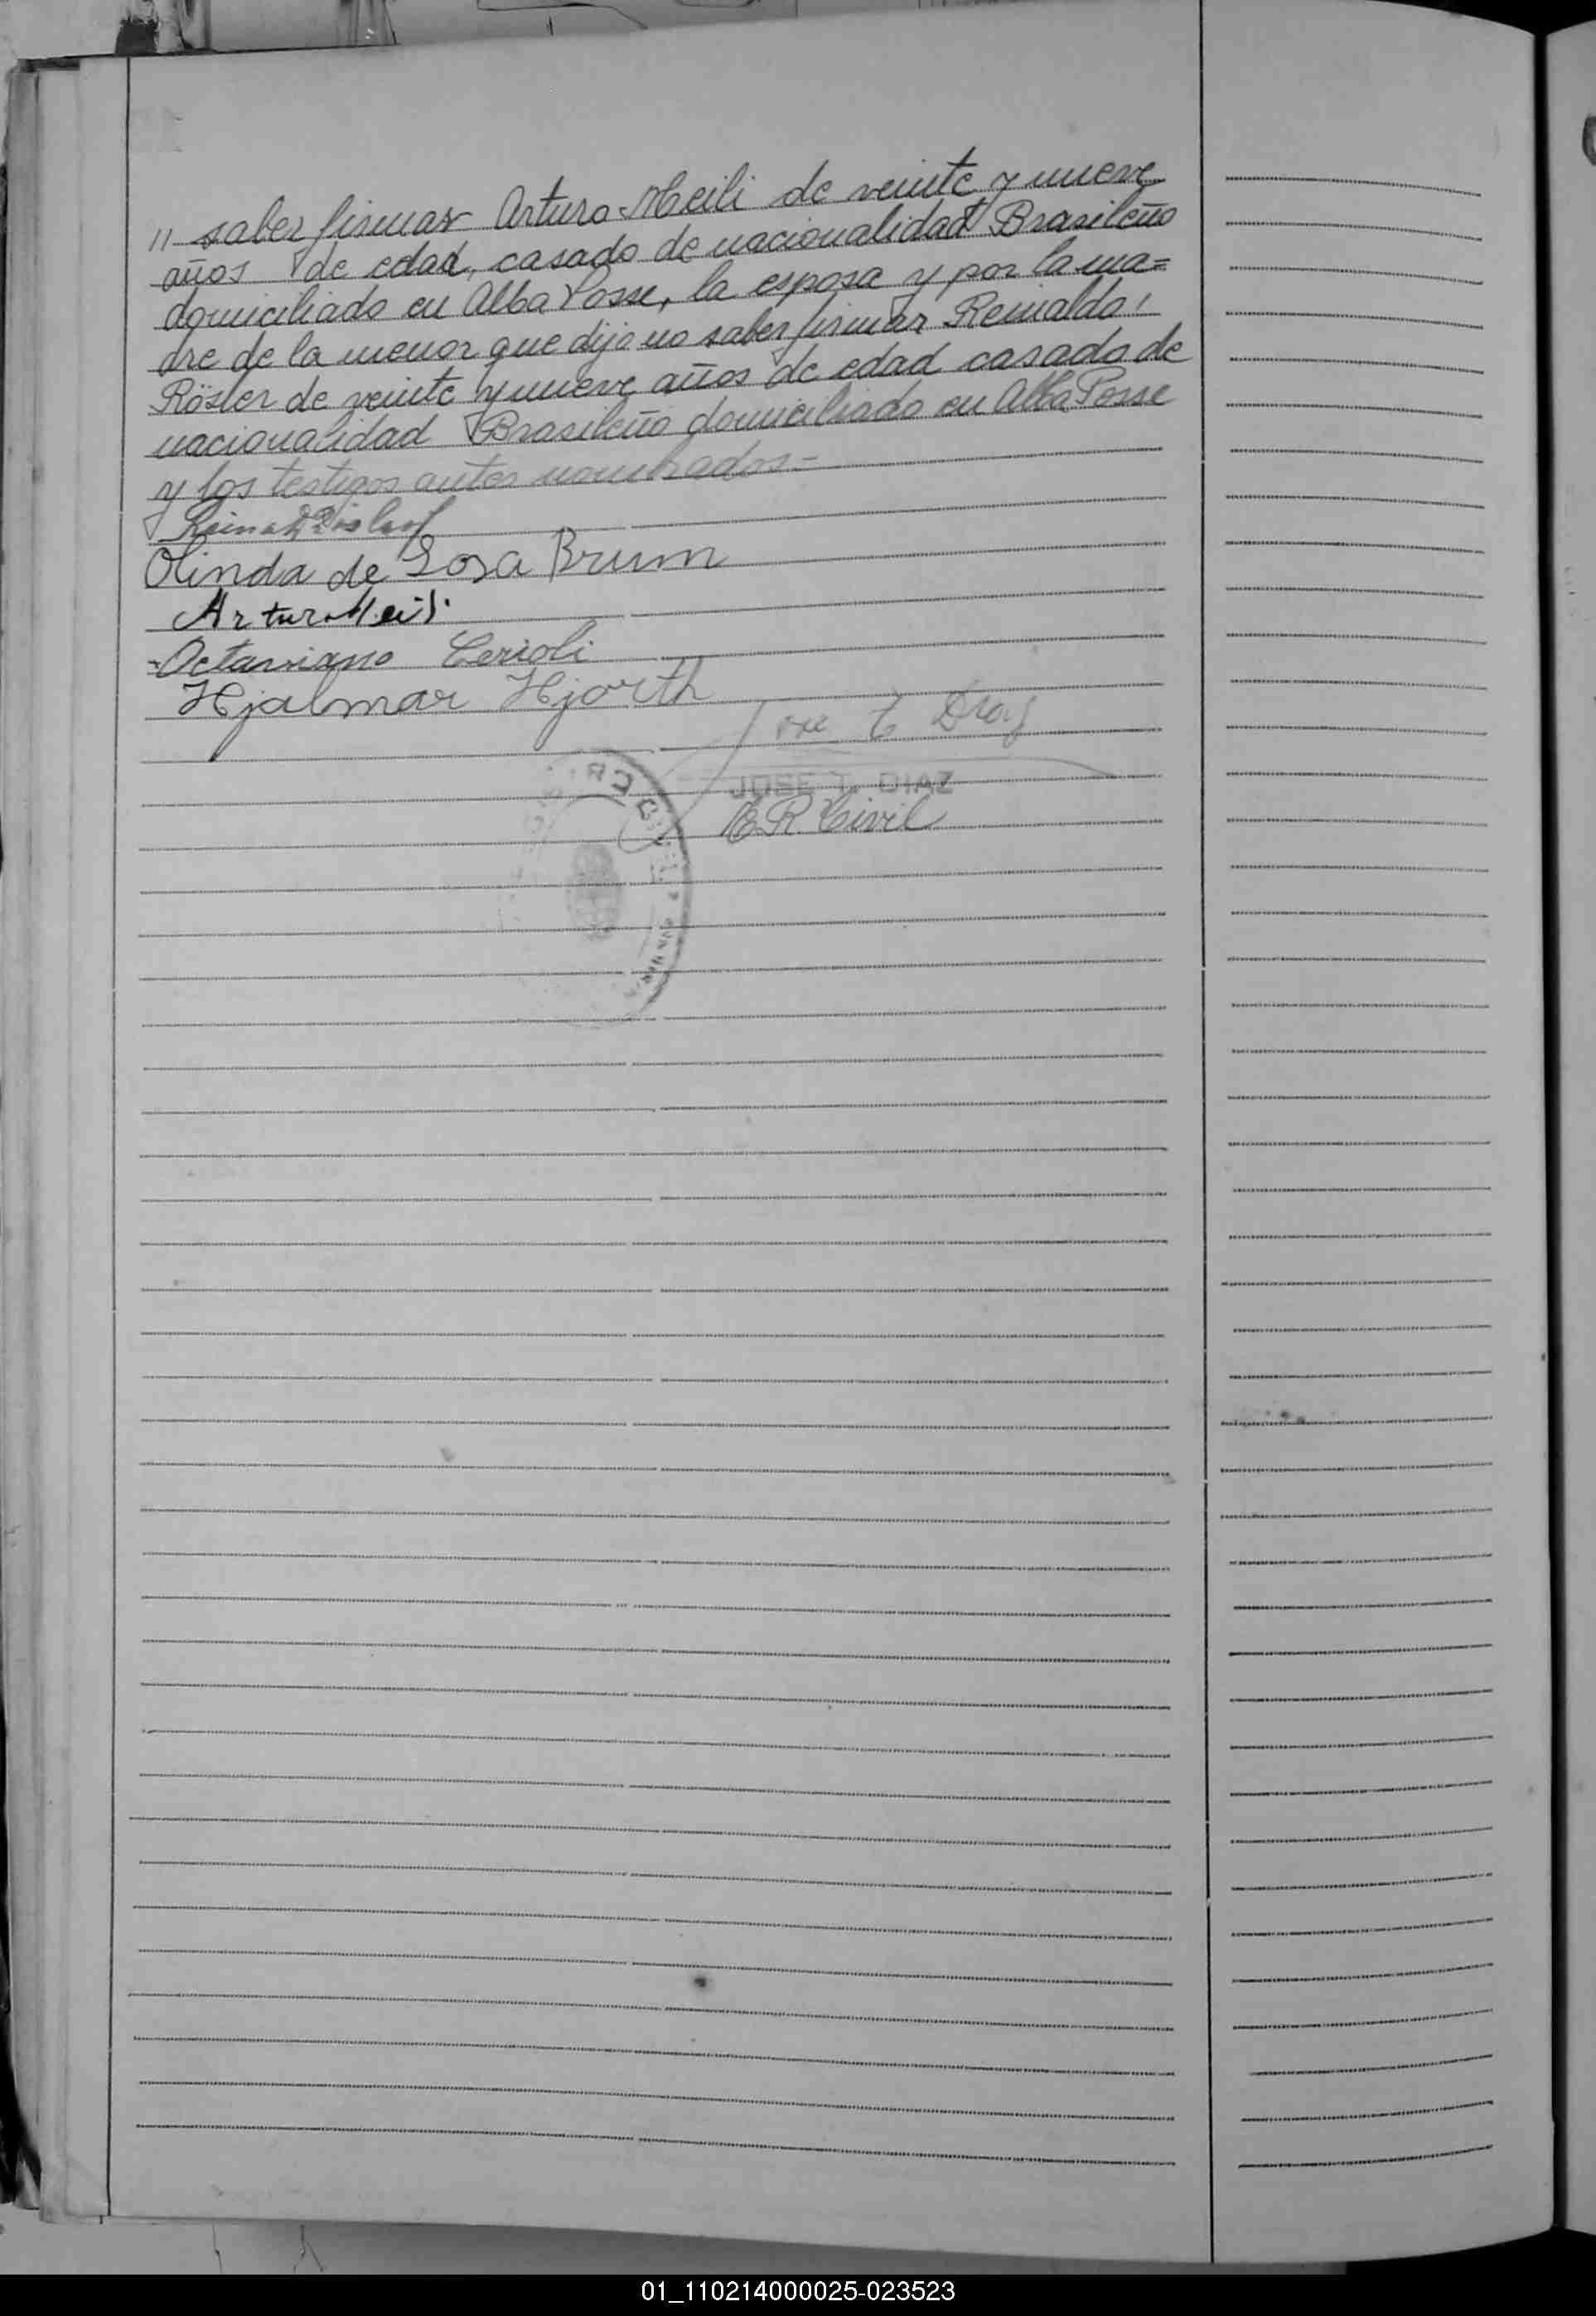 " saber firmar Arturo Meili de veinte y nueve
años de edad, casado de nacionalidad Brasileño
domiciliado en Alba Posse, la esposa y por la ma=
dre de la menor que dijo no saber firmar Reinaldo
Röster de veinte y nueve años de edad casado de
nacionalidad Brasileño domiciliado en Alba Posse
y los testigos antes nombrados=
Olinda de Sosa Brum
Arturo Meili
Octaviano Cerioli
Hjalmar Hjorth
Jose T Diaz
JOSE T. DIAZ
E R Civil
01_110214000025-023523